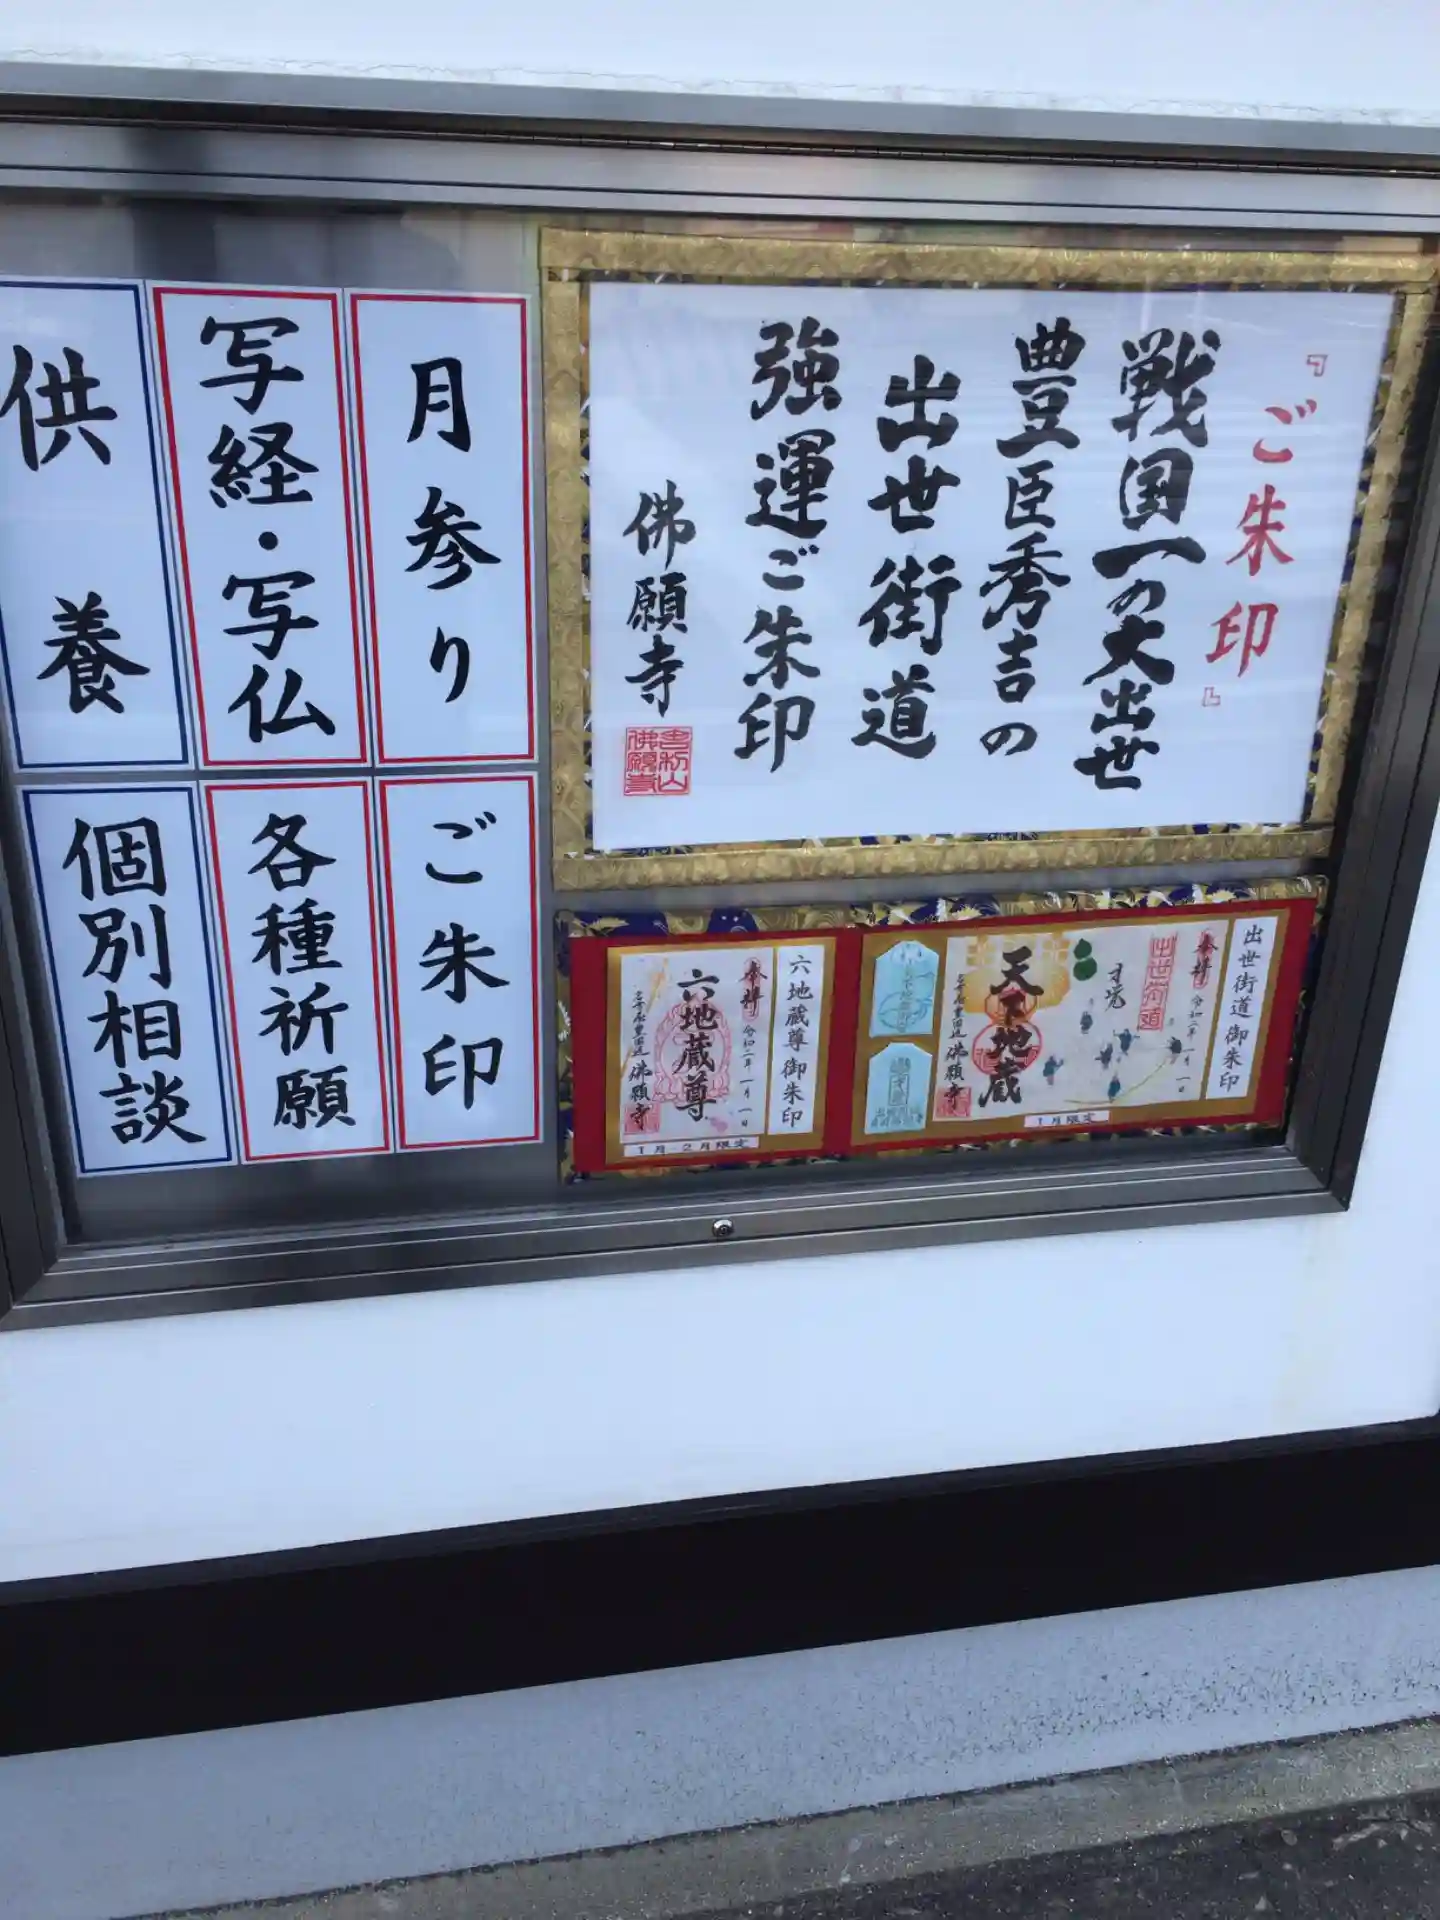 『ご朱印』
戦国一の大出世
豊臣秀吉の
出世街道
強運ご朱印
佛願寺
月参り
写経・写仏
供養
ご朱印
各種祈願
個別相談
出世街道御朱印
奉拝
令和二年一月一日
出世街道
天下地蔵
佛願寺
1月限定
六地蔵尊御朱印
奉拝
令和二年一月一日
六地蔵尊
佛願寺
1月 2月限定